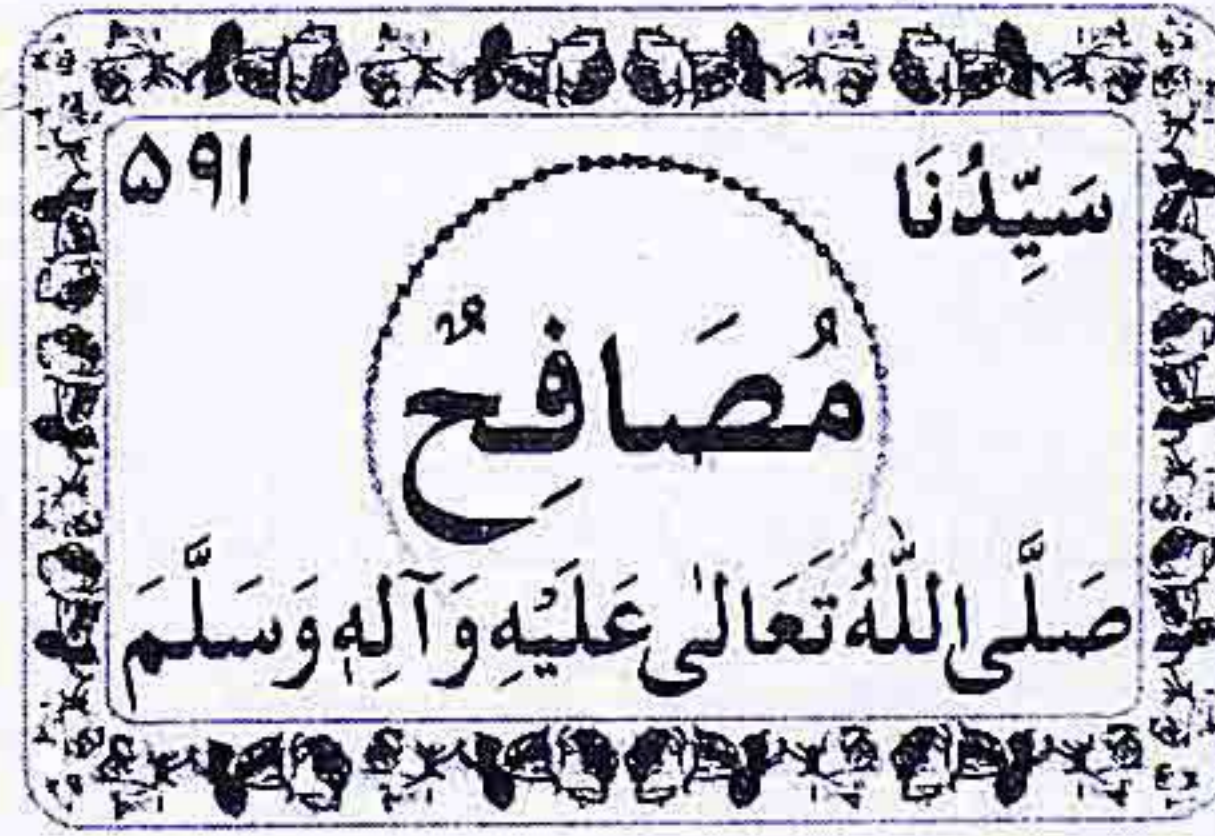 سَيِّدُنَا ۵۹۱
مُصَافِحٌ
صَلَّى اللّٰهُ تَعَالٰى عَلَيْهِ وَآلِهٖ وَسَلَّمَ